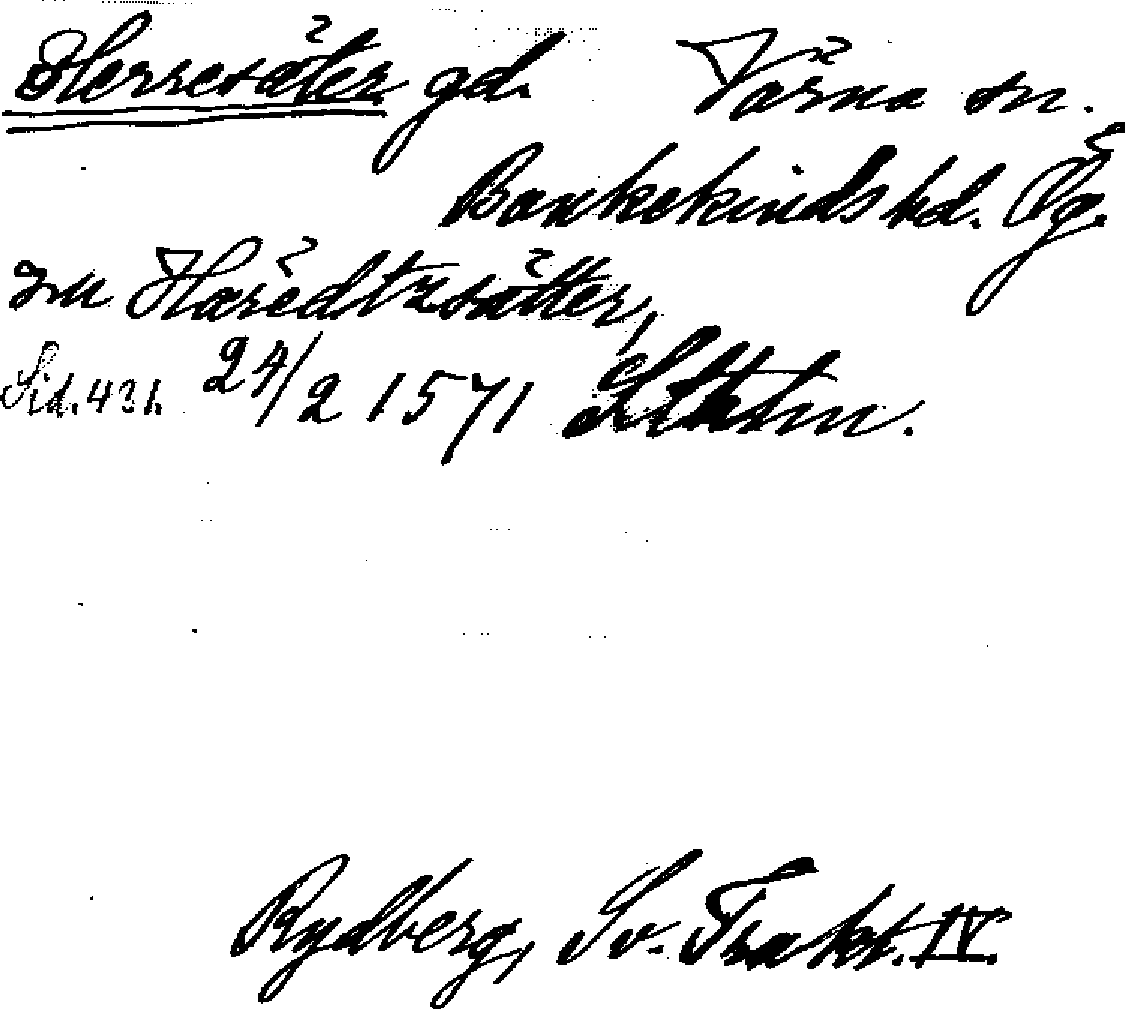 Herresäter gd. Värna sn.
Bankekinds hd. Ög.
zm Härédtzsätter,
Sid. 431. 24/2 1571 Sthlm.
Rydberg, Sv. Trakt. IV.